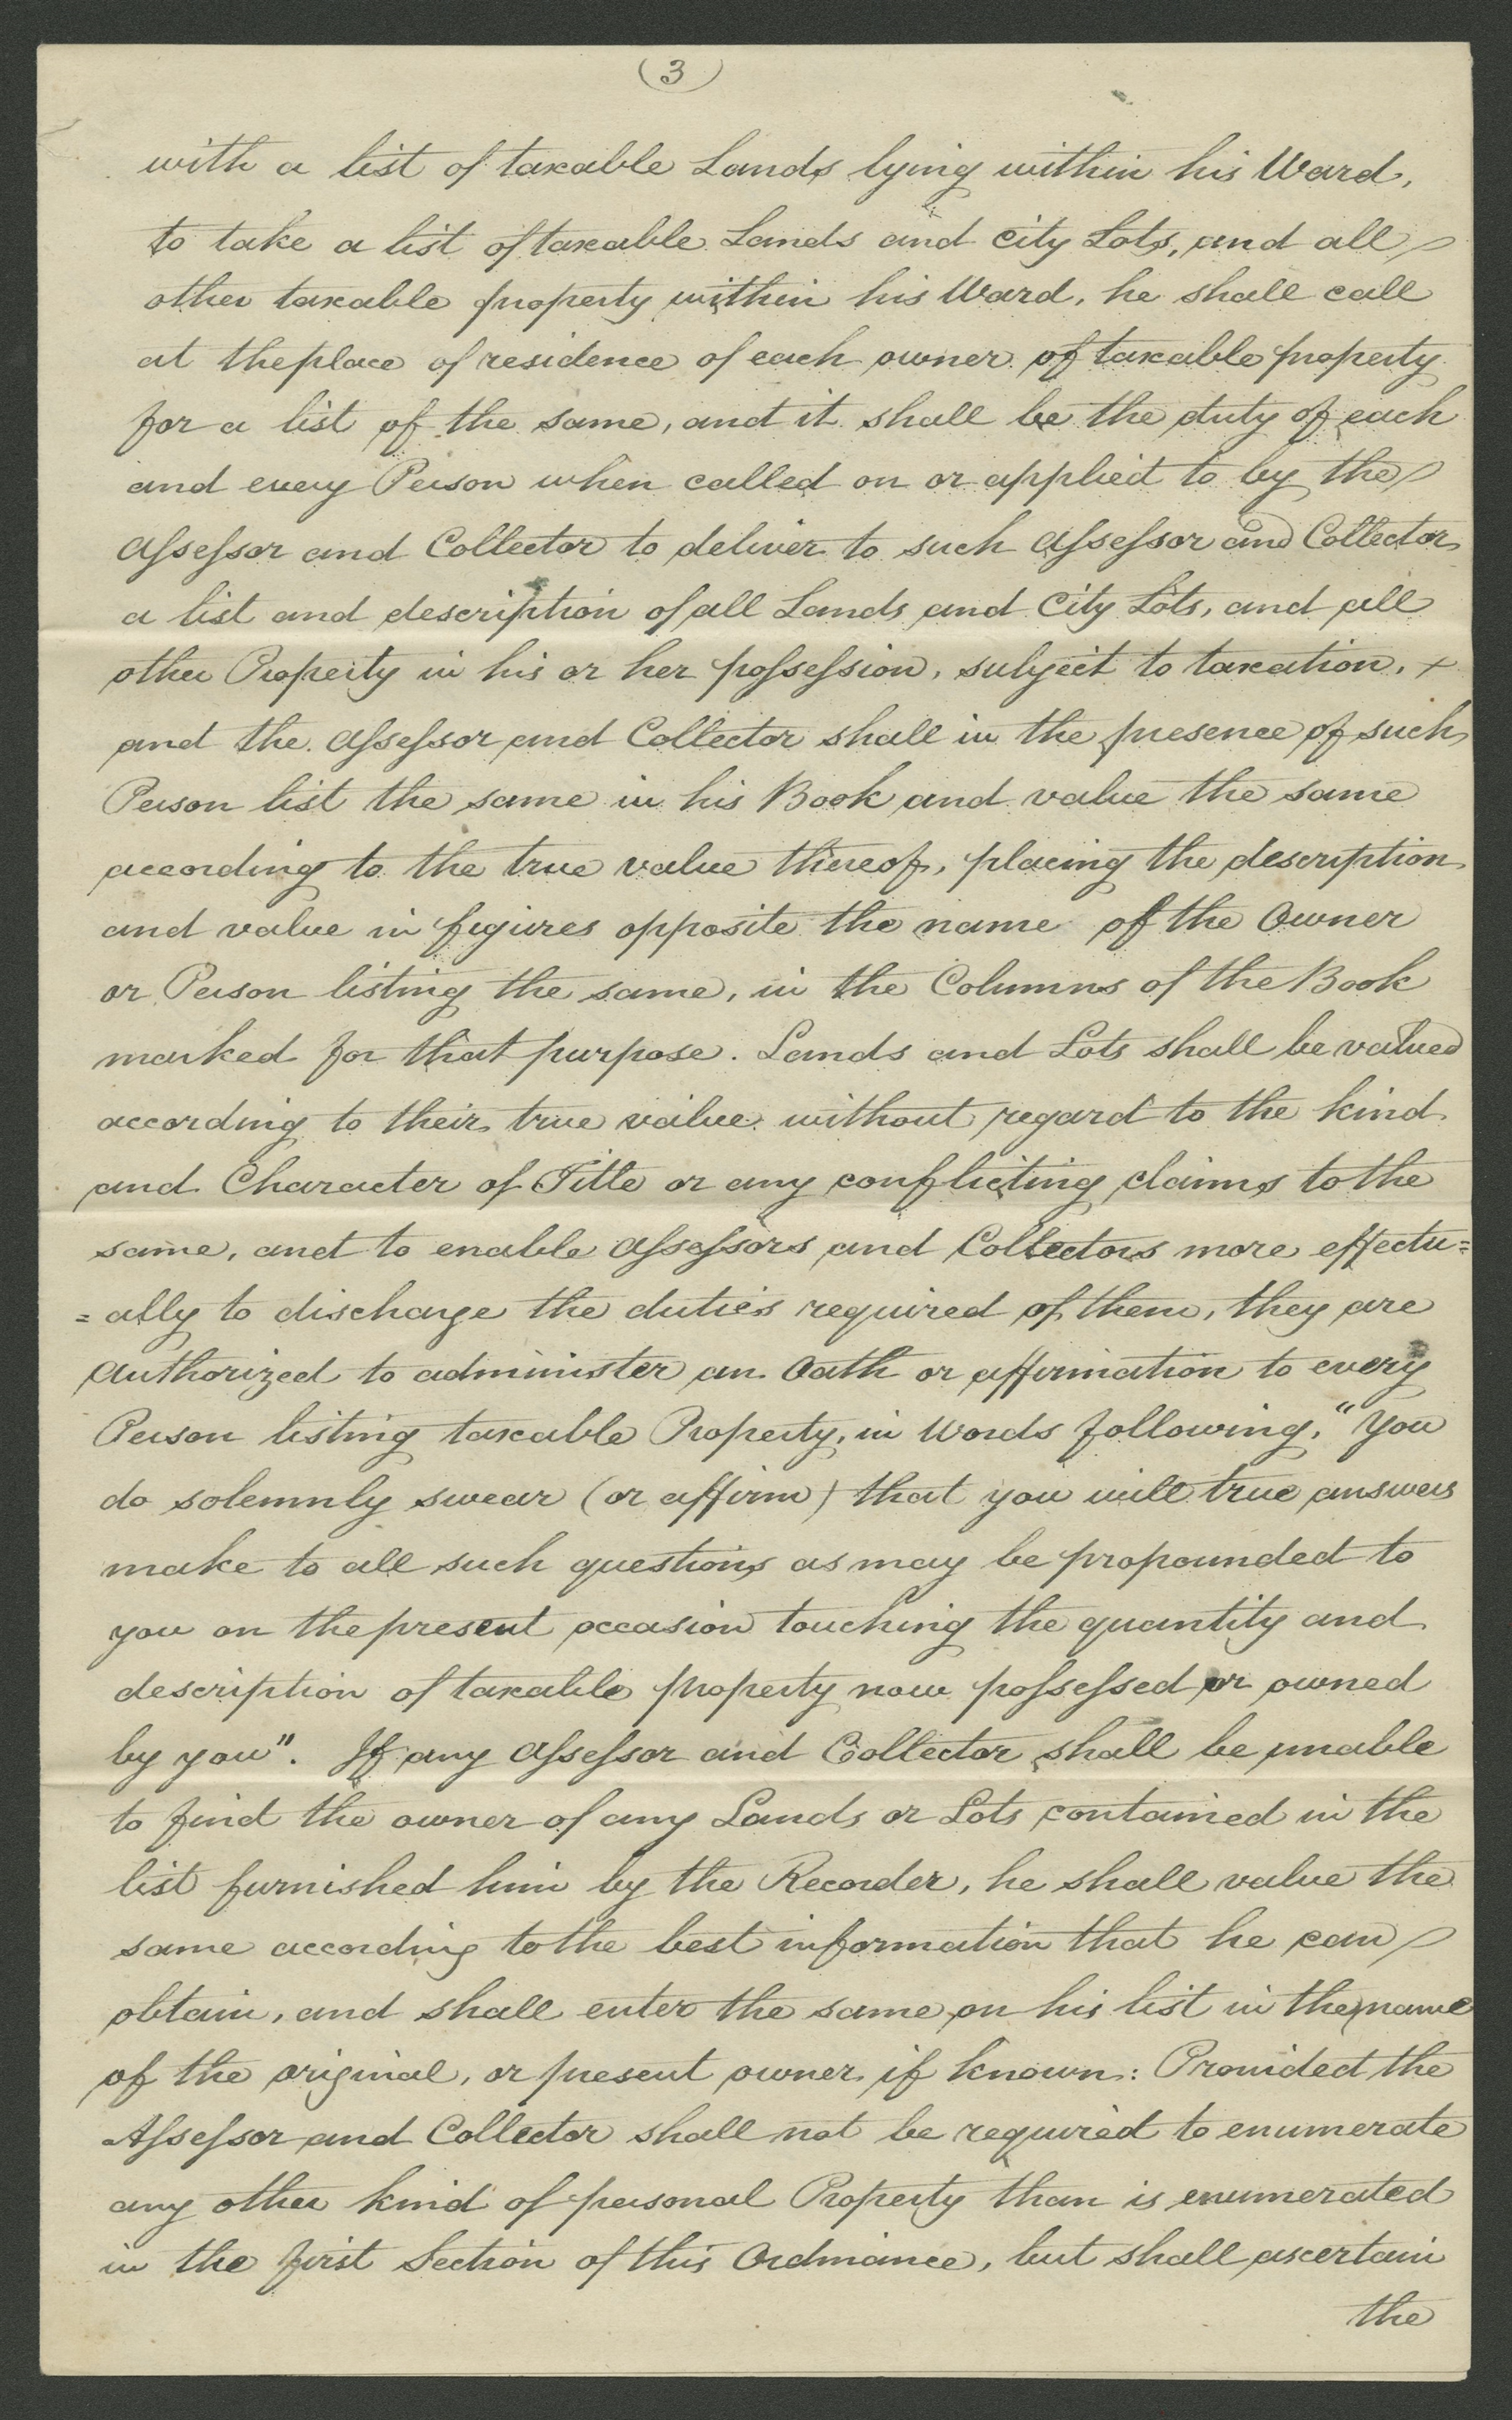 (3)
with a list of taxable Lands lying within his Ward,
to take a list of taxable Lands and City Lots, and all
other taxable property within his Ward, he shall call
at the place of residence of each owner of taxable property
for a list of the same, and it shall be the duty of each
and every Person when called on or applied to by the
Assessor and Collector to deliver to such Assessor and Collector
a list and description of all Lands and City Lots, and all
other Property in his or her possession, subject to taxation, +
and the Assessor and Collector shall in the presence of such
Person list the same in his Book and value the same
according to the true value thereof, placing the description
and value in figures opposite the name of the Owner
or Person listing the same, in the Columns of the Book
marked for that purpose. Lands and Lots shall be valued
according to their true value without regard to the kind
and Character of Title or any conflicting claims to the
same, and to enable Assessors and Collectors more effectu=
=ally to discharge the duties required of them, they are
Authorized to administer an Oath or affirmation to every
Person listing taxable Property, in Words following, "You
do solemnly swear (or affirm) that you will true answers
make to all such questions as may be propounded to
you on the present occasion touching the quantity and
description of taxable property now possessed or owned
by you". If any Assessor and Coollector shall be unable
to find the owner of any Lands or Lots contained in the
list furnished him by the Recorder, he shall value the
same according to the best information that he can
obtain, and shall enter the same on his list in the name
of the original, or present owner if known: Provided the
Assessor and Collector shall not be required to enumerate
any other kind of personal Property than is enumerated
in the first Section of this Ordinance, but shall ascertain
the